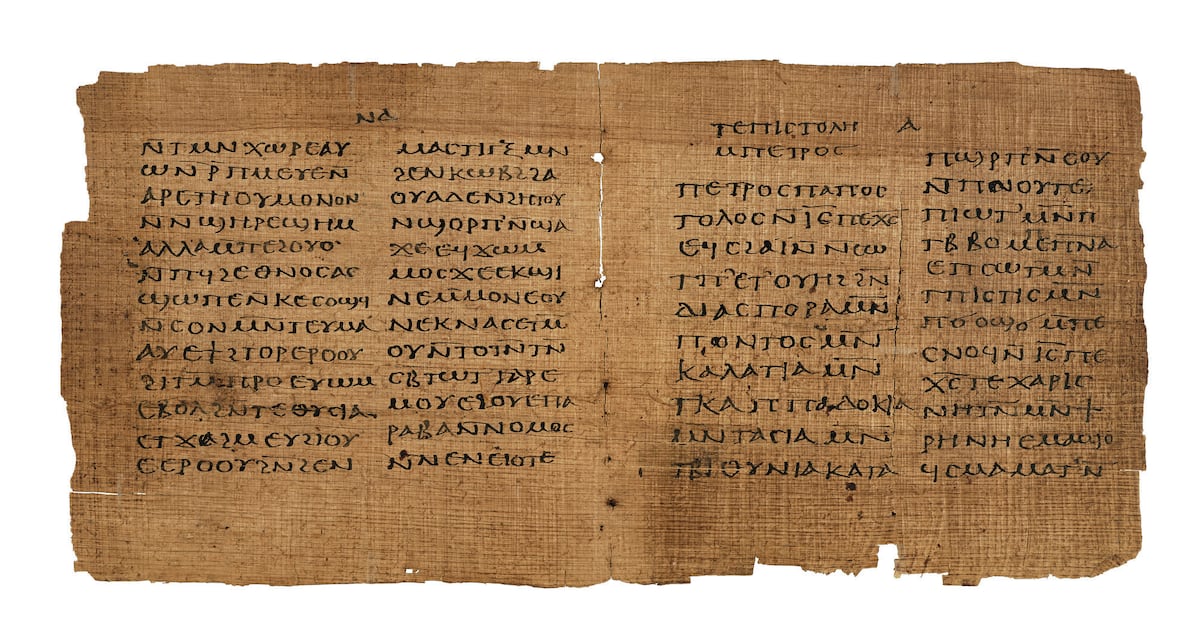 ⲛⲁ
ⲛⲧⲙⲛⲭⲱⲣⲉⲁⲩ
ⲱⲛⲣⲡⲙⲉⲩⲉⲛ
ⲁⲣⲉⲧⲏⲟⲩⲙⲟⲛⲟⲛ
ⲛⲛϣⲏⲣⲉϣⲏⲙ
ⲁⲗⲗⲁⲙⲡⲉϩⲟⲩⲟ
ⲛⲡϥϩⲉⲑⲛⲟⲥⲁⲥ
ϣⲱⲡⲉⲛⲕⲉⲥⲟϣϥ
ⲛⲥⲟⲛⲙ̅ⲛⲧⲉⲩⲙⲁ
ⲁⲩⲉϯϩⲧⲟⲣⲉⲣⲟⲟⲩ
ϩⲓⲧⲙ̅ⲡⲣⲟⲉⲩⲱⲙ
ⲉⲃⲟⲗϩⲛⲧⲉⲑⲩⲥⲓⲁ
ⲉⲧϫⲁϩⲙⲉⲩϩⲓⲟⲩ
ⲉⲉⲣⲟⲟⲩϩⲛϩⲉⲛ
ⲙⲁⲥⲧⲓⲅⲝⲙⲛ
ϩⲉⲛⲕⲱⲃϩϩⲁ
ⲟⲩⲁⲇⲉⲛϩⲏⲧⲟⲩ
ⲛϣⲟⲣⲡⲛ̅ϣⲁ
ϫⲉⲉϥϫⲱⲙ
ⲙⲟⲥϫⲉⲉⲕϣⲓ
ⲛⲉⲙ̅ⲙⲟⲛⲉⲟⲩ
ⲛⲉⲕⲛⲁⲥⲉⲧⲙ
ⲟⲩⲛ̅ⲧⲟⲓⲛⲧⲛ
ⲥⲃⲧⲱⲧⲅⲁⲣⲉ
ⲙⲟⲩⲉϩⲟⲩⲉⲡⲁ
ⲣⲁⲃⲁⲛⲛⲟⲙⲟⲥ
ⲛ̅ⲛⲉⲛⲉⲓⲟⲧⲉ
ⲧⲉⲡⲓⲥⲧⲟⲗⲏ ⲁ
ⲙⲡⲉⲧⲣⲟⲥ
ⲡⲉⲧⲣⲟⲥⲡⲁⲡⲟⲥ
ⲧⲟⲗⲟⲥⲛⲓ̅ⲥ̅ⲡⲉⲭⲥ
ⲉϥⲥϩⲁⲓⲛ̅ⲛⲥⲱ
ⲧⲡⲉⲧⲟⲩⲏϩϩⲛ̅
ⲇⲓⲁⲥⲡⲟⲣⲁⲙ̅ⲛ̅
ⲡⲟⲛⲧⲟⲥⲙⲛ̅
ⲕⲁⲗⲁⲧⲓⲁⲙ̅ⲛ̅
ⲧⲕⲁⲡⲡⲁⲇⲟⲕⲓⲁ
ⲙⲛⲧⲁⲥⲓⲁⲙ̅ⲛ
ⲧⲃⲓⲑⲩⲛⲓⲁⲕⲁⲧⲁ
ⲡϣⲣⲡⲛ̅ⲥⲟⲩ
ⲛ̅ⲡⲛⲟⲩⲧⲉ
ⲡⲓⲱⲧⲙ̅ⲛ̅ⲡ
ⲧⲃⲃⲟⲙⲉⲡⲛ̅ⲁ̅
ⲉⲡⲥⲱⲧⲙⲛ̅
ⲧⲡⲓⲥⲧⲓⲥⲙ̅ⲛ̅
ⲡϭⲟϣϭϣⲙ̅ⲡⲉ
ⲥⲛⲟϥⲛ̅ⲓ̅ⲥ̅ⲡⲉ
ⲭ̅ⲥ̅ⲧⲉⲭⲁⲣⲓⲥ
ⲛⲏⲧⲛ̅ⲙⲛϯ
ⲣⲏⲛⲏⲉⲙⲁϣⲟ
ϥⲥⲙⲁⲙⲁⲧⲛ